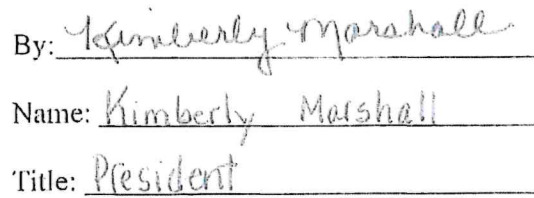 By: Kimberly Marshall
Name: Kimberly Marshall
Title: President